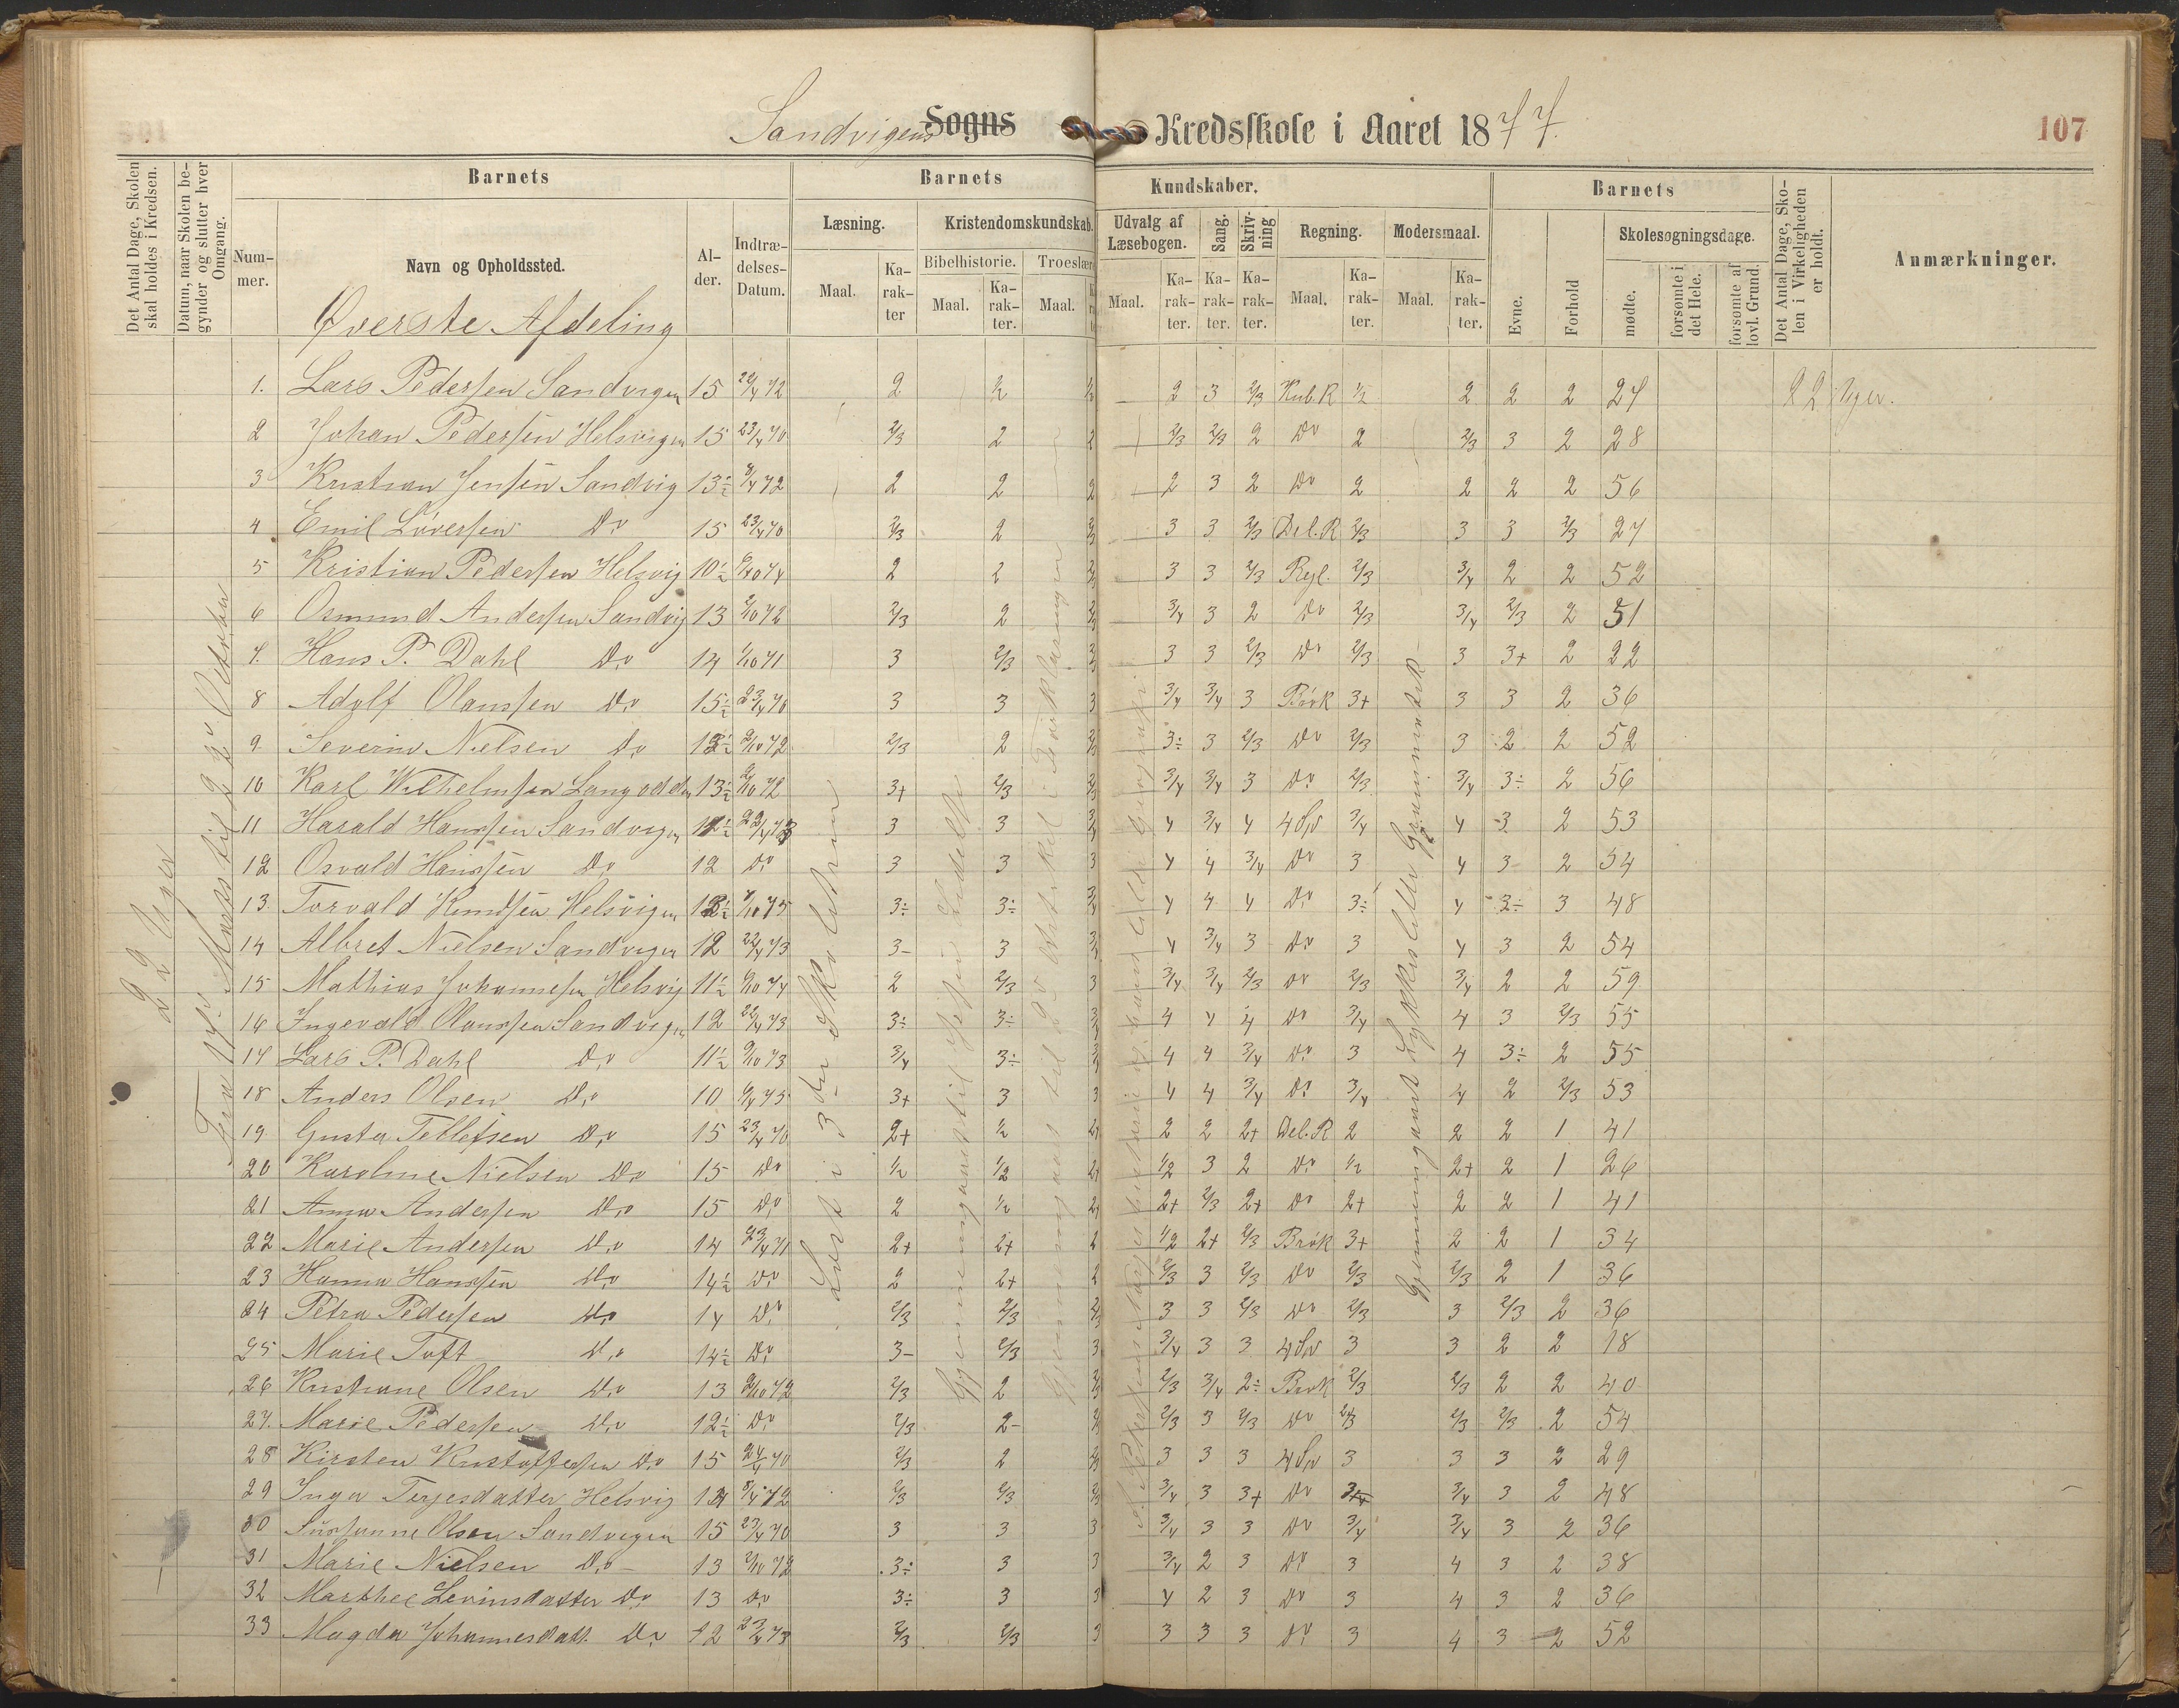 Sandvigens Sogns Kredsskole i Aaret 1877.
107
Det Antal Dage, Skolen skal holdes i Kredsen.
Datum, naar Skolen begynder og slutter hver Omgang.
Barnets
Nummer.
Navn og Opholdssted.
Alder.
Indtrædelses-Datum.
Barnets Kundskaber.
Læsning.
Maal.
Karakter
Kristendomskundskab.
Bibelhistorie.
Maal.
Karakter.
Troeslære
Maal.
Udvalg af Læsebogen.
Maal.
Karakter.
Sang.
Karakter.
Skrivning
Karakter.
Regning.
Maal.
Karakter.
Modersmaal.
Maal.
Karakter.
Barnets
Evne.
Forhold
Skolesøgningsdage.
mødte.
forsømte i det Hele.
forsømte af lovl. Grund.
Det Antal Dage, Skolen i Virkeligheden er holdt.
Anmærkninger.
Øverste Afdeling
22 Uger
Læst i 3die Skoletrin
1. Lars Pedersen Sandvigen 15 22/4 72 2 ½ 2 3 2/3 Kub.R ½ 2 2 2 27 22 Uger.
2 Johan Pedersen Helsvigen 15 23/4 70 2/3 2 2 2/3 2/3 2 Do 2 2/3 3 2 28
3 Kristian Jensen Sandvig 13½ 8/4 72 2 2 2 2 3 2 Do 2 2 2 2 56
4 Emil Løversen Do 15 23/4 70 2/3 2 2/3 3 3 2/3 Del.R 2/3 3 3 2/3 27
5 Kristian Pedersen Helsvig 10½ 6/10 74 2 2 2/3 3 3 2/3 Regl. 2/3 3/4 2 2 52
6 Osmund Andersen Sandvig 13 2/10 72 2/3 2 2/3 3/4 3 2 Do 2/3 3/4 2/3 2 51
7. Hans P. Dahl Do 14 1/10 71 3 2/3 3 3 2/3 Do 2/3 3 3+ 2 22
8 Adolf Olaussen Do 15½ 23/4 70 3 3 3 3/4 3/4 3 Brök 3+ 3 3 2 36
9. Severin Nielsen Do 2/10 72 2/3 2 2/3 3÷ 3 2/3 Do 2/3 3 2 2 52
10 Karl Wilhelmsen Langodden 13½ 2/10 72 3+ 2/3 2/3 3/4 3/4 3 Do 2/3 3/4 3÷ 2 56
11 Harald Hanssen Sandvigen 3 3 3/4 4 3/4 4 4 Sp 3/4 4 3 2 53
12 Osvald Hanssen Do 12 Do 3 3 3 4 4 3/4 Do 3 4 3 2 54
13. Torvald Knudsen Helsvigen 7/10 75 3÷ 3÷ 3/4 4 4 4 Do 3÷ 4 3÷ 3 48
14 Albret Nielsen Sandvigen 12 22/4 73 3- 3 3/4 4 3/4 3 Do 3 4 3 2 54
15 Mathias Johannesen Helsvig 11½ 6/10 74 2 2/3 3 3/4 3/4 2/3 Do 2/3 3/4 2 2 59
16 Ingevald Olaussen Sandvigen 12 22/4 73 3÷ 3÷ 3/4 4 4 4 Do 3/4 4 3 2/3 55
17 Lars P. Dahl Do 11½ 9/10 73 3/4 3÷ 3/4 4 4 3/4 Do 3 4 3÷ 2 55
18 Anders Olsen Do 10 6/4 75 3+ 3 3 4 4 3/4 Do 3/4 4 2 2/3 53
19. Gusta Tellefsen Do 15 23/4 70 2+ ½ 2+ 2 2 2+ Del.R 2 2 2 1 41
20 Karoline Nielsen Do 15 Do ½ ½ 2+ ½ 3 2 Do ½ 2+ 2 1 26
21 Anna Andersen Do 15 Do 2 ½ 2+ 2+ 2/3 2+ Do 2+ 2 2 1 41
22 Marie Andersen Do 14 23/4 71 2+ 2+ 2 ½ 2+ 2/3 Brök 3+ 2 2 1 34
23 Hanna Hanssen Do 14½ Do 2 2+ 2 2/3 3 2/3 Do 2/3 2/3 2 1 36
24 Petra Pedersen Do 14 Do 2/3 2/3 2/3 3 3 2/3 Do 2/3 3 2/3 2 36
25 Marie Toft Do 14½ Do 3- 2/3 3 3/4 3 3 4 Sp 3 3 2 2 18
26 Kristiane Olsen Do 13 2/10 72 2/3 2 2/3 2/3 3/4 2÷ Brök 2/3 2/3 2 2 40
27. Marie Pedersen Do 12½ Do 2/3 2- 2/3 2/3 3 2/3 Do 2/3 2/3 2/3 2 54
28 Kirsten Kristoffersen Do 15 24/4 70 2/3 2 2/3 3 3 3 4 Sp 3 3 3 2 29
29 Inga Terjesdatter Helsvig 8/4 72 2/3 2/3 2/3 3/4 3 3+ Do 3/4 3 2 48
30 Susanne Olsen Sandvigen 15 23/4 70 3 3 3 3/4 3 3 Do 3/4 3/4 3 2 36
31 Marie Nielsen Do 13 2/10 72 3÷ 3 3 3/4 2 3 Do 3 4 3 2 38
32 Marthee Levinsdatter Do 13 Do 3÷ 3 3 4 2 3 Do 3 4 3 2 36
33 Magda Johannesdatt. Do 12 23/4 73 2/3 2/3 3 3 3 3 Do 3 4 3 2 52